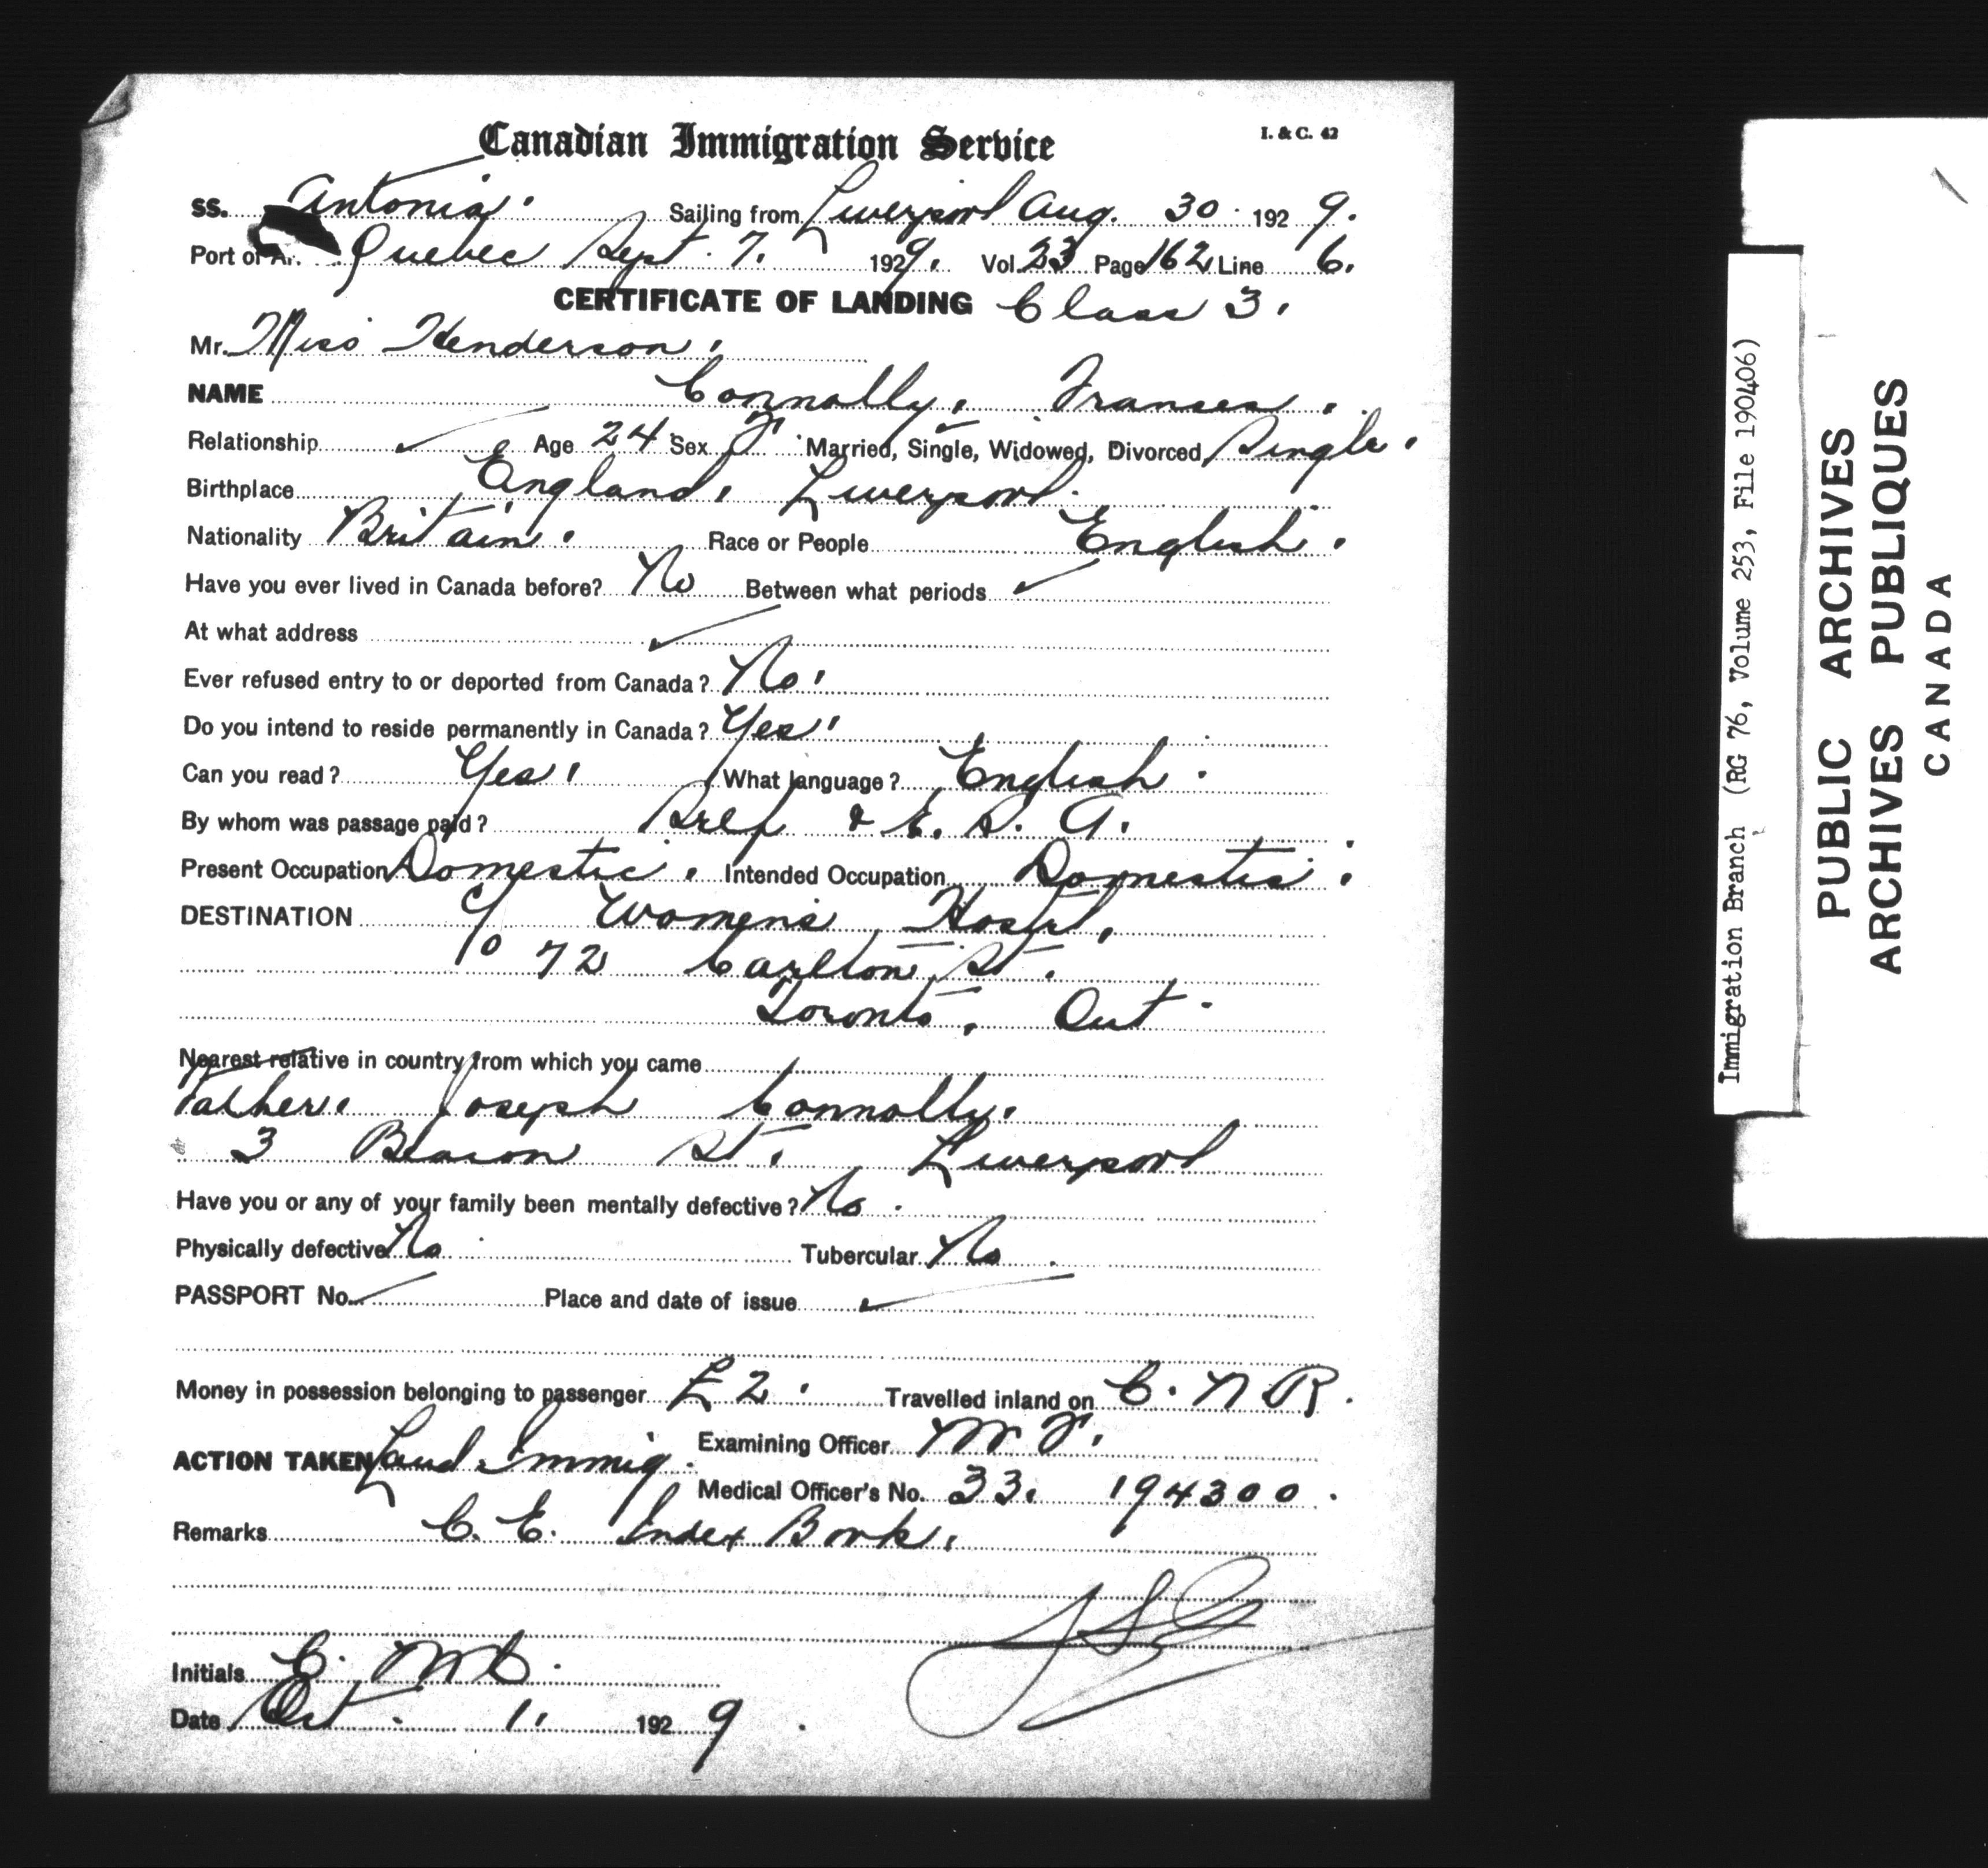 Canadian Immigration Service I. & C. 42
SS. Antonia. Sailing from Liverpool Aug. 30 1929.
Port of Ar. Quebec Sept. 7. 1929. Vol 23 Page 162 Line 6.
CERTIFICATE OF LANDING Class 3.
Mr. Miss Henderson.
NAME Connolly. Frances.
Relationship ✓ Age 24 Sex F Married, Single, Widowed, Divorced, Single.
Birthplace England. Liverpool.
Nationality Britain. Race or People English.
Have you ever lived in Canada before? No Between what periods ✓
At what address ✓
Ever refused entry to or deported from Canada? No.
Do you intend to reside permanently in Canada? Yes.
Can you read? Yes. What language? English.
By whom was passage paid? Self & E. S. A.
Present Occupation Domestic. Intended Occupation Domestic.
DESTINATION c/o Women's Hostel,
72 Carlton St.
Toronto, Ont
Nearest relative in country from which you came
Father. Joseph Connolly.
3 Beacon St. Liverpool
Have you or any of your family been mentally defective? No.
Physically defective No Tubercular No.
PASSPORT No. ✓ Place and date of issue ✓
Money in possession belonging to passenger £2. Travelled inland on C. N R.
ACTION TAKEN Land. Immig. Examining Officer M F.
Medical Officer's No. 33. 194300.
Remarks C. E. Index Book.
Initials C. Mc.
Date Oct. 1. 1929.
Immigration Branch (RG 76, Volume 253, File 190406)
PUBLIC ARCHIVES
ARCHIVES PUBLIQUES
CANADA